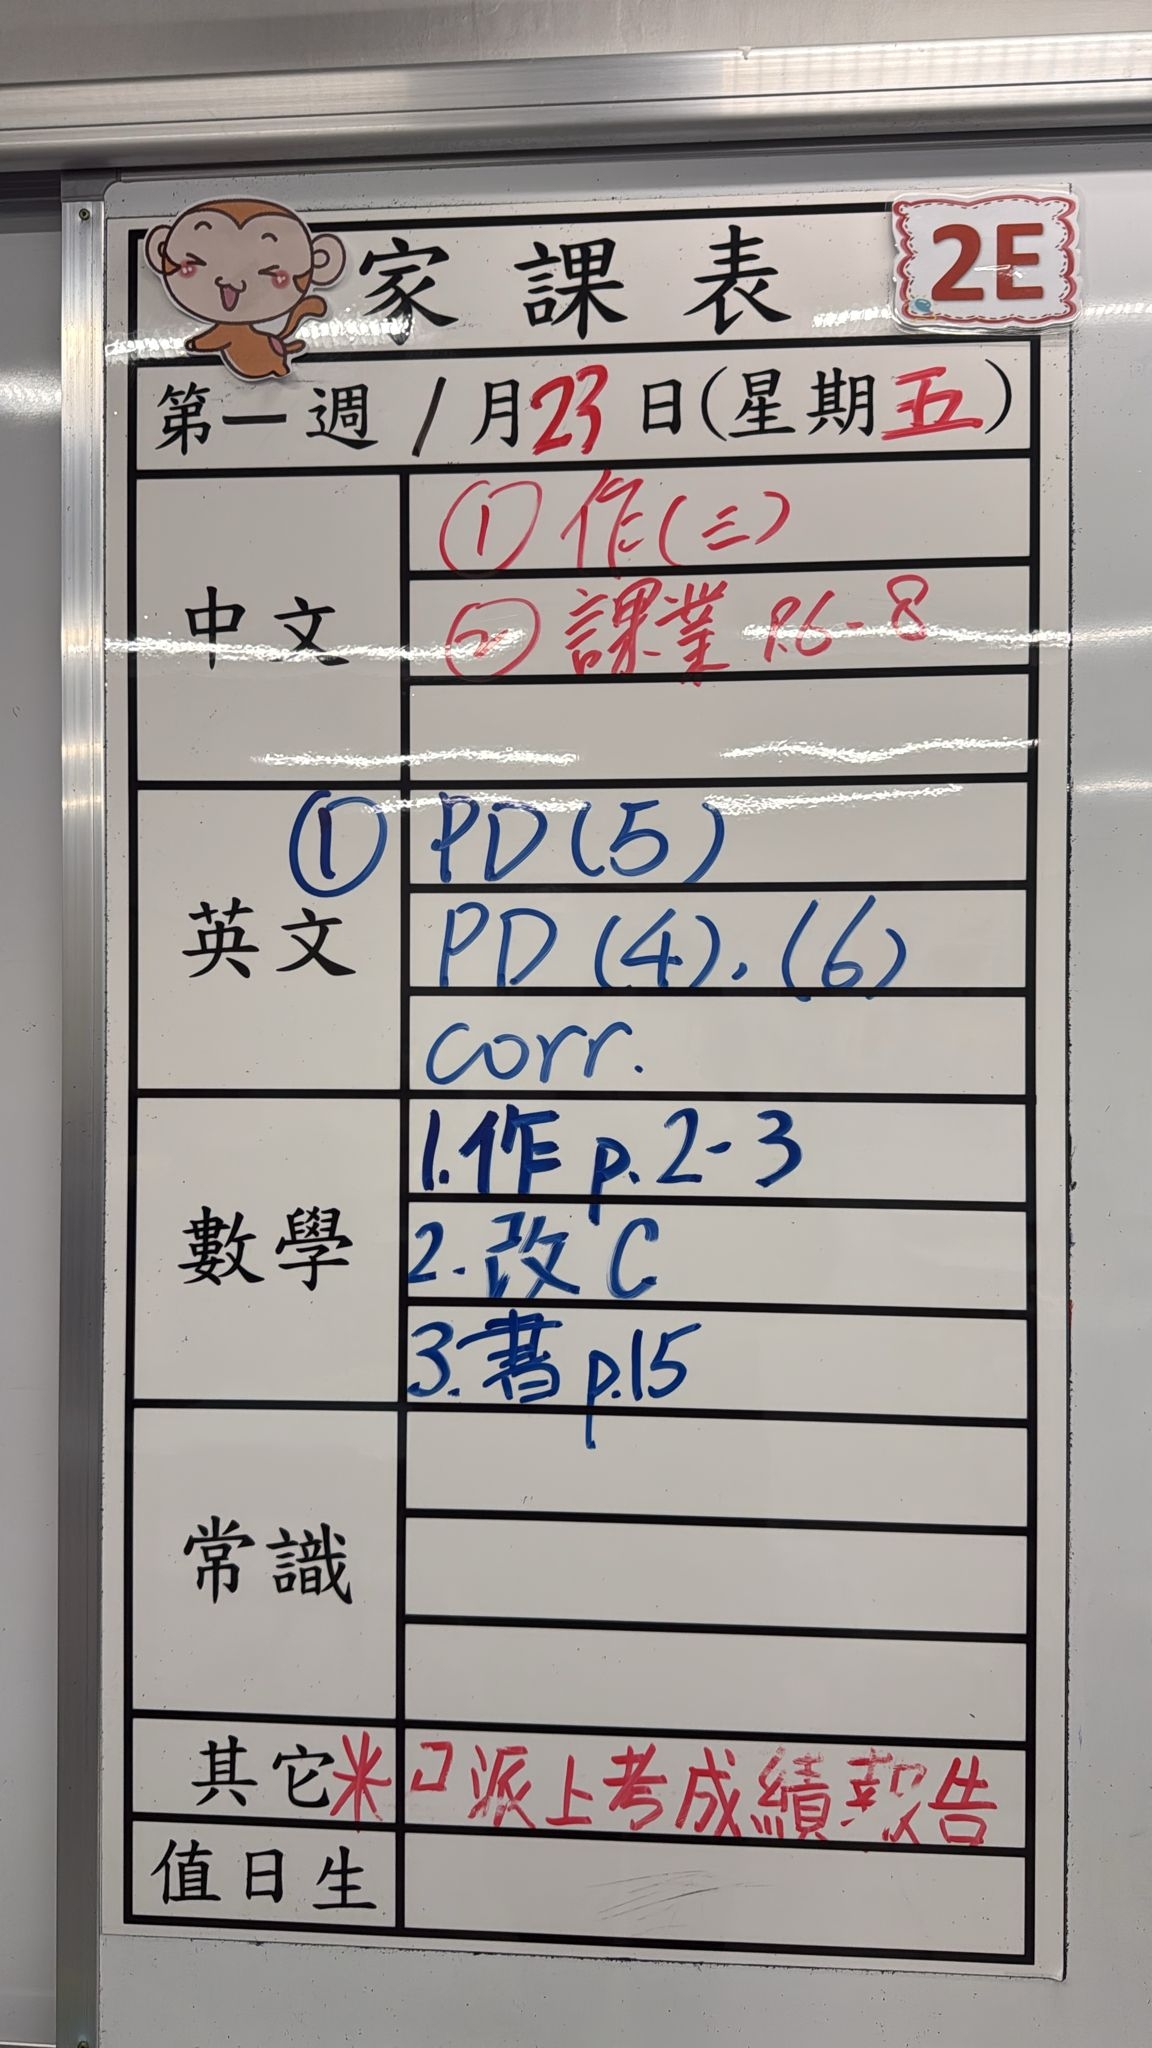 家課表 2E
第一週 1月23日(星期五)
中文
① 作(三)
② 課業 P.6-8
英文
① PD(5)
PD (4), (6)
corr.
數學
1.作 p.2-3
2.改 C
3.書 p.15
常識
其它
派上考成績報告
值日生